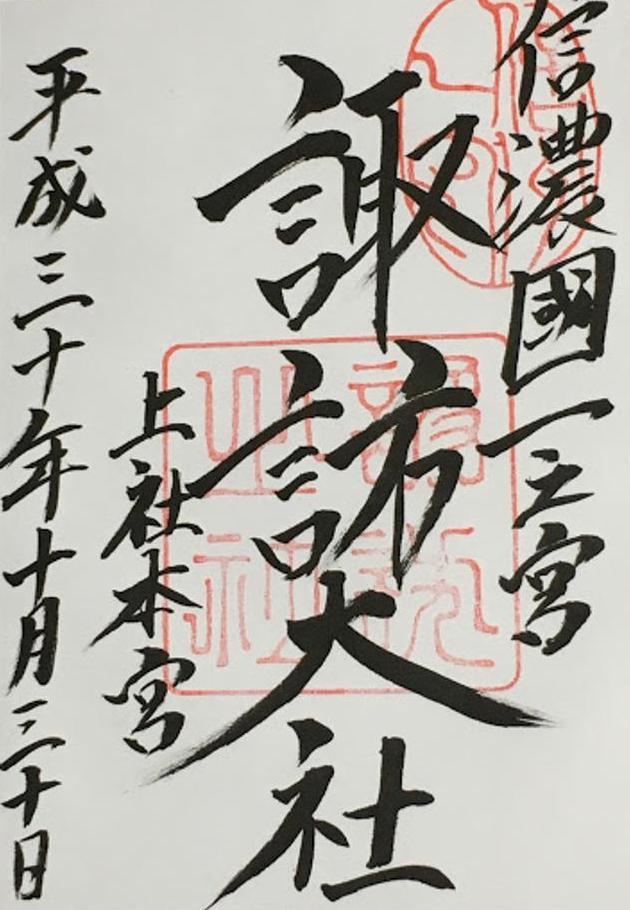 信濃國一之宮
諏訪大社
上社本宮
平成三十年十月三十日